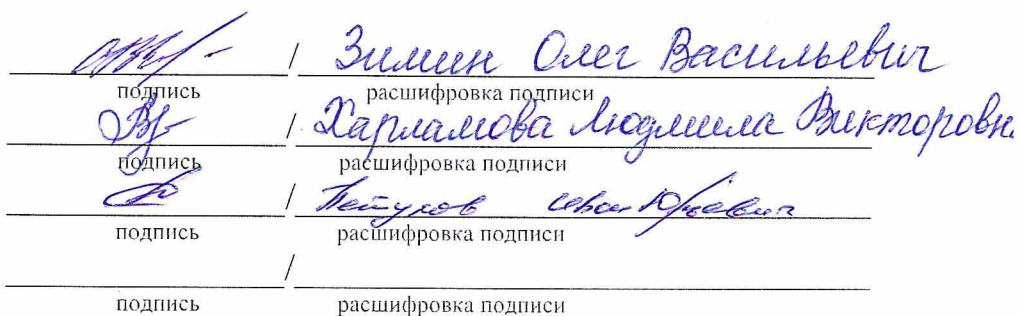 / Зимин Олег Васильевич
подпись расшифровка подписи
/ Харламова Людмила Викторовн
подпись расшифровка подписи
/ Петухов Иван Юрьевич
подпись расшифровка подписи
/
подпись расшифровка подписи